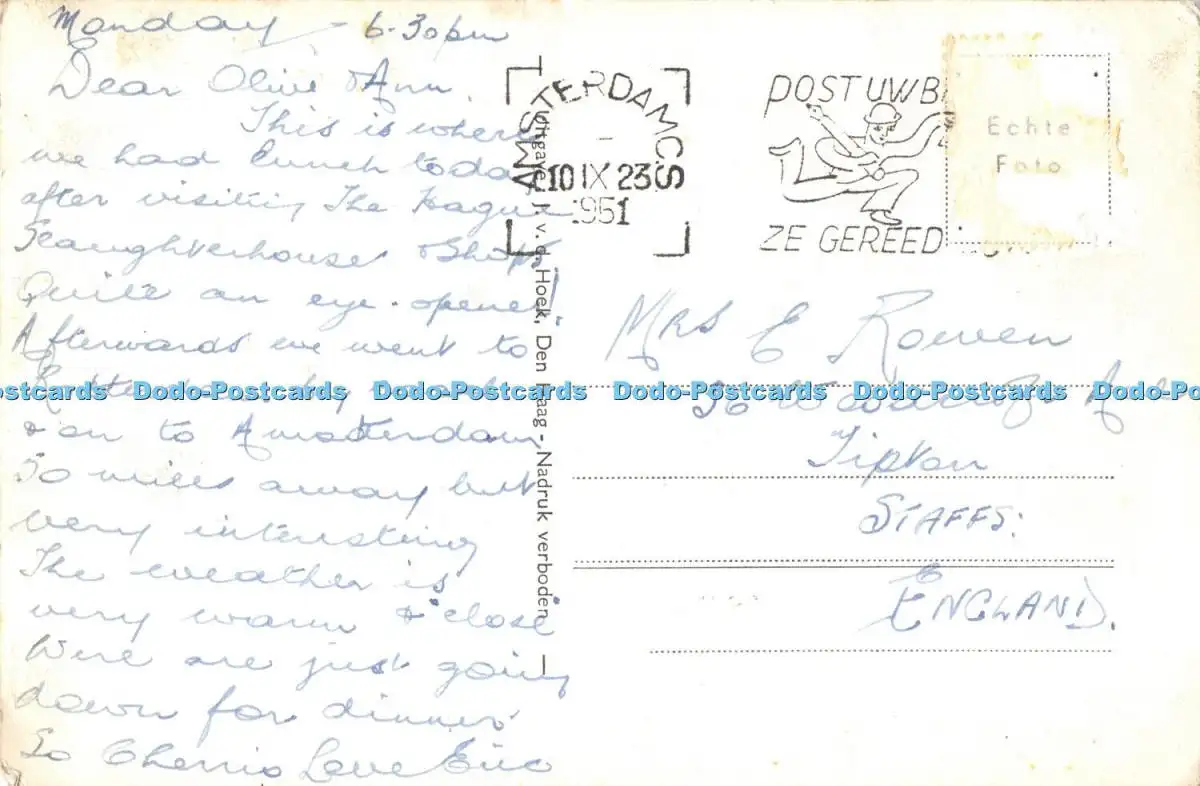 Monday - 6-30pm
Dear Olive & Ann,
This is where
we had lunch today
after visiting The Hague
Slaughterhouse & Shops
Quite an eye-opener!
Afterwards we went to
& on to Amsterdam
50 miles away but
very interesting
The weather is
very warm & close
We're are just going
down for dinner
So Cherrio Love Eric
Uitgave: J. v. d. Hoek, Den Haag - Nadruk verboden
AMSTERDAM CS
10 IX 23
1951
POST UW B
ZE GEREED
Echte
Foto
Mrs E Rowen
36
Tipton
STAFFS:
ENGLAND.
Dodo-Postcards Dodo-Postcards Dodo-Postcards Dodo-Postcards Dodo-Postcards